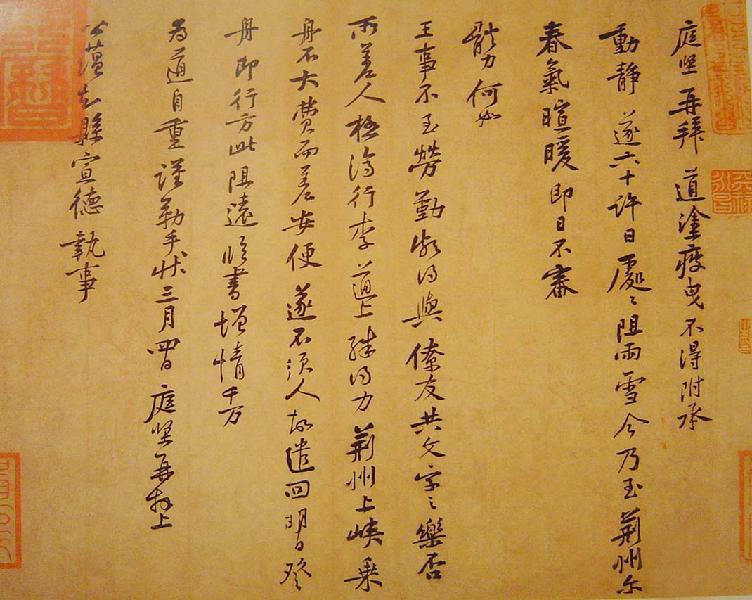 庭堅再拜道塗疲曳不得附承
動靜遂六十許日處〻阻雨雪今乃至荊州尔
春氣暄暖即日不審
體力何如
王事不至勞勤頗得與僚友共文字之樂否
所差人極濟行李道上殊得力荊州上峽乘
舟不大費而差安便遂不須人故遣回明日登
舟即行方此阻遠臨書增情千万
為道自重謹勒手狀三月四日庭堅再拜上
縣宣德執事